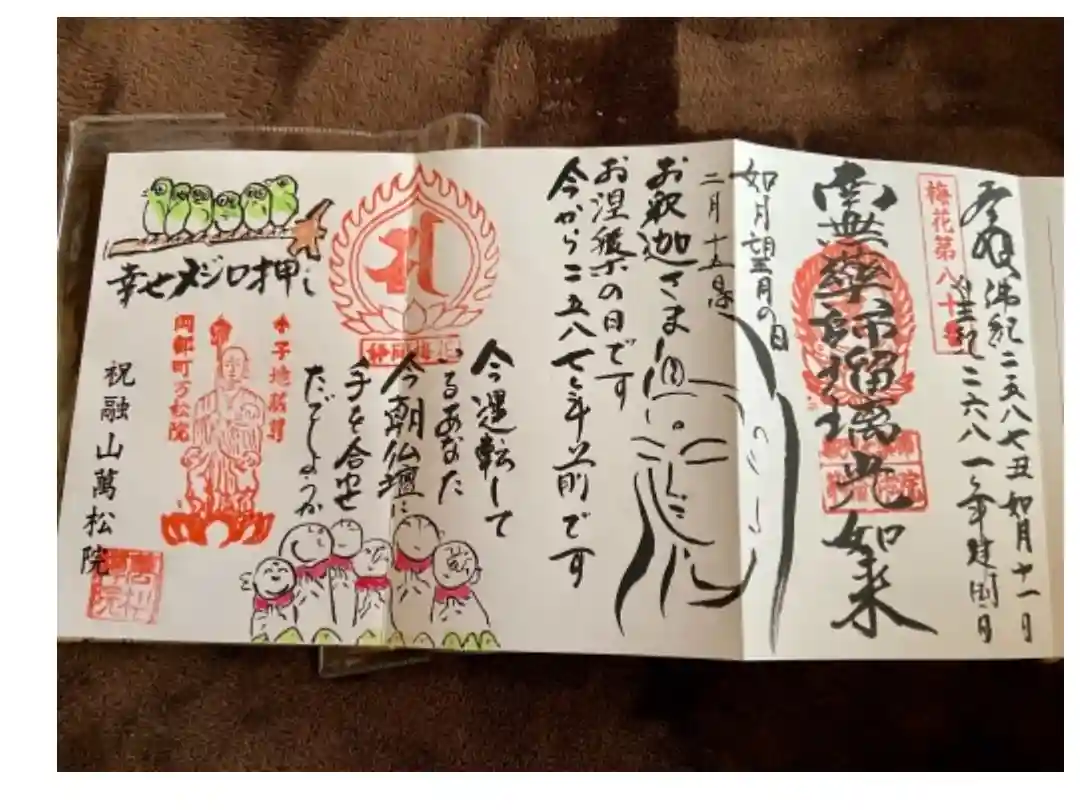 奉拝 佛紀二五八七丑如月十一日
皇紀二六八一年建国日
梅花第八十番
南無薬師瑠璃光如来
如月望月の日
二月十五日
お釈迦さま
お涅槃の日です
今から二五八七年以前です
今運転して
いるあなた
今朝仏壇に
手を合せ
たでしょうか
幸せメジロ押し
水子地蔵尊
岡部町万松院
祝融山萬松院